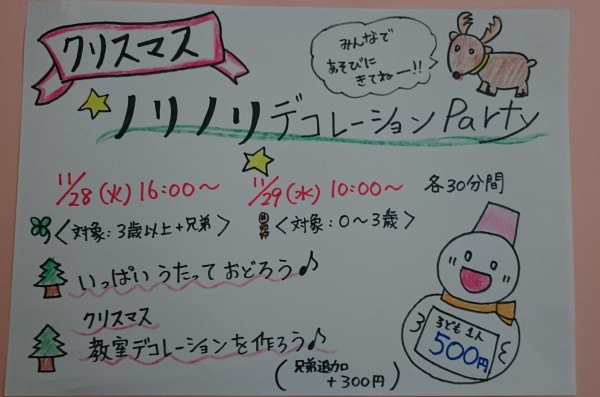 クリスマス
みんなで
あそびに
きてねー!!
ノリノリデコレーションParty
11/28(火)16:00～ 11/29(水)10:00～ 各30分間
〈対象:3歳以上+兄弟〉 〈対象:0～3歳〉
いっぱいうたっておどろう♪
クリスマス
教室デコレーションを作ろう♪
(兄弟追加
+300円)
子ども1人
500円